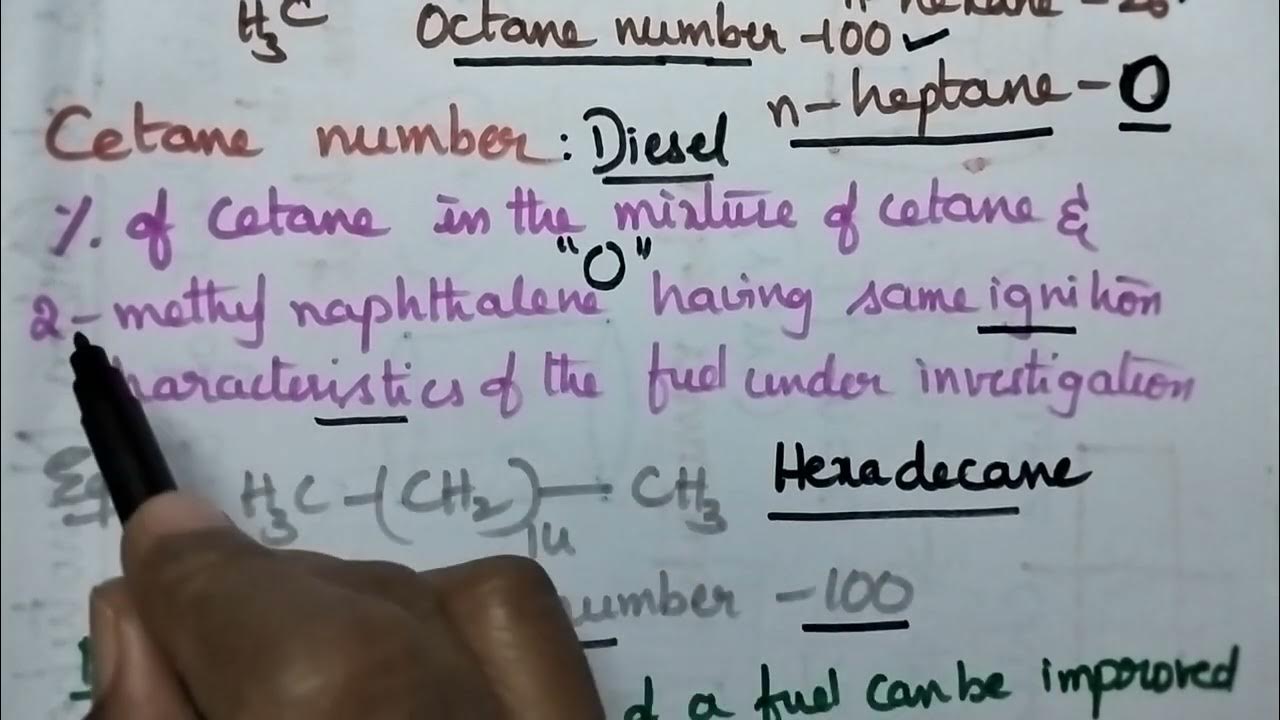 H3C
Octane number -100 ✓
n-heptane - 0
Cetane number: Diesel
% of cetane in the mixture of cetane &
"0"
2-methyl naphthalene having same ignition
characteristics of the fuel under investigation
Eg H3C-(CH2)14-CH3 Hexadecane
number -100
a fuel can be improved